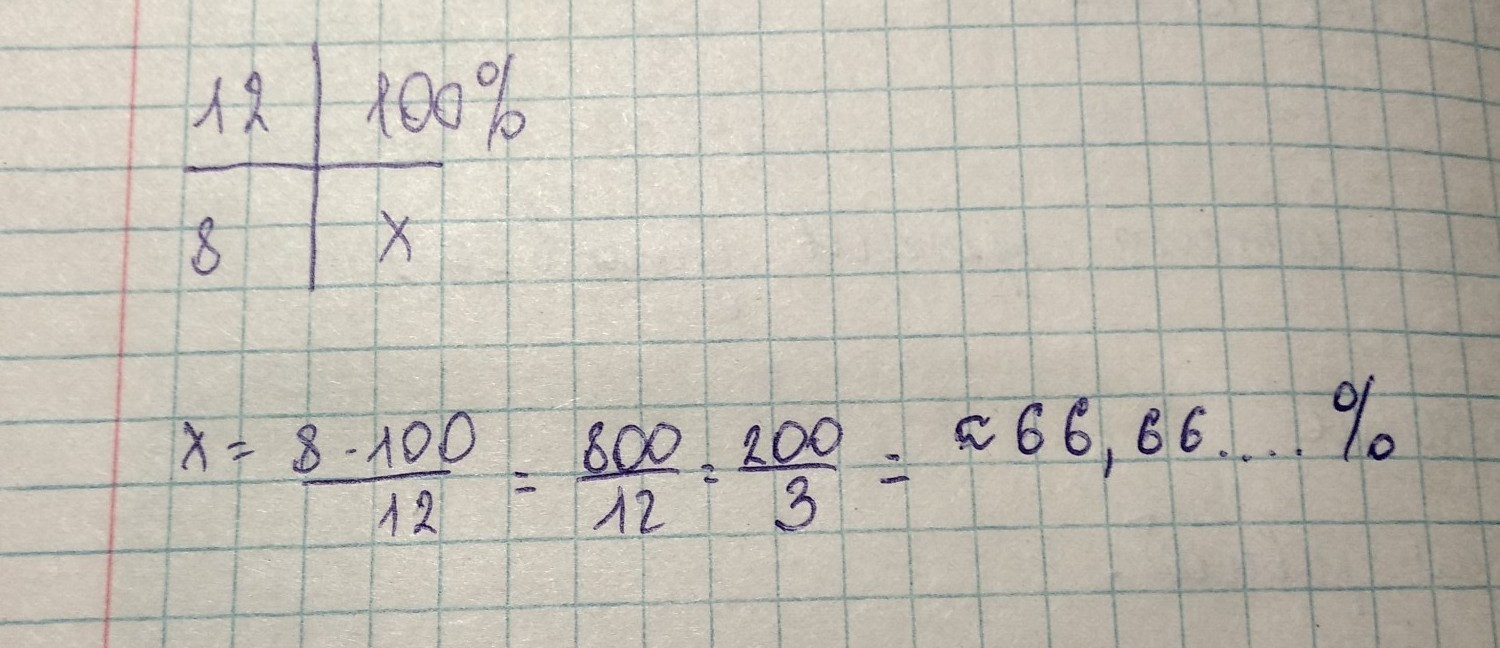 12 | 100%
8 | x
x = 8·100/12 = 800/12 = 200/3 = ≈ 66,66....%